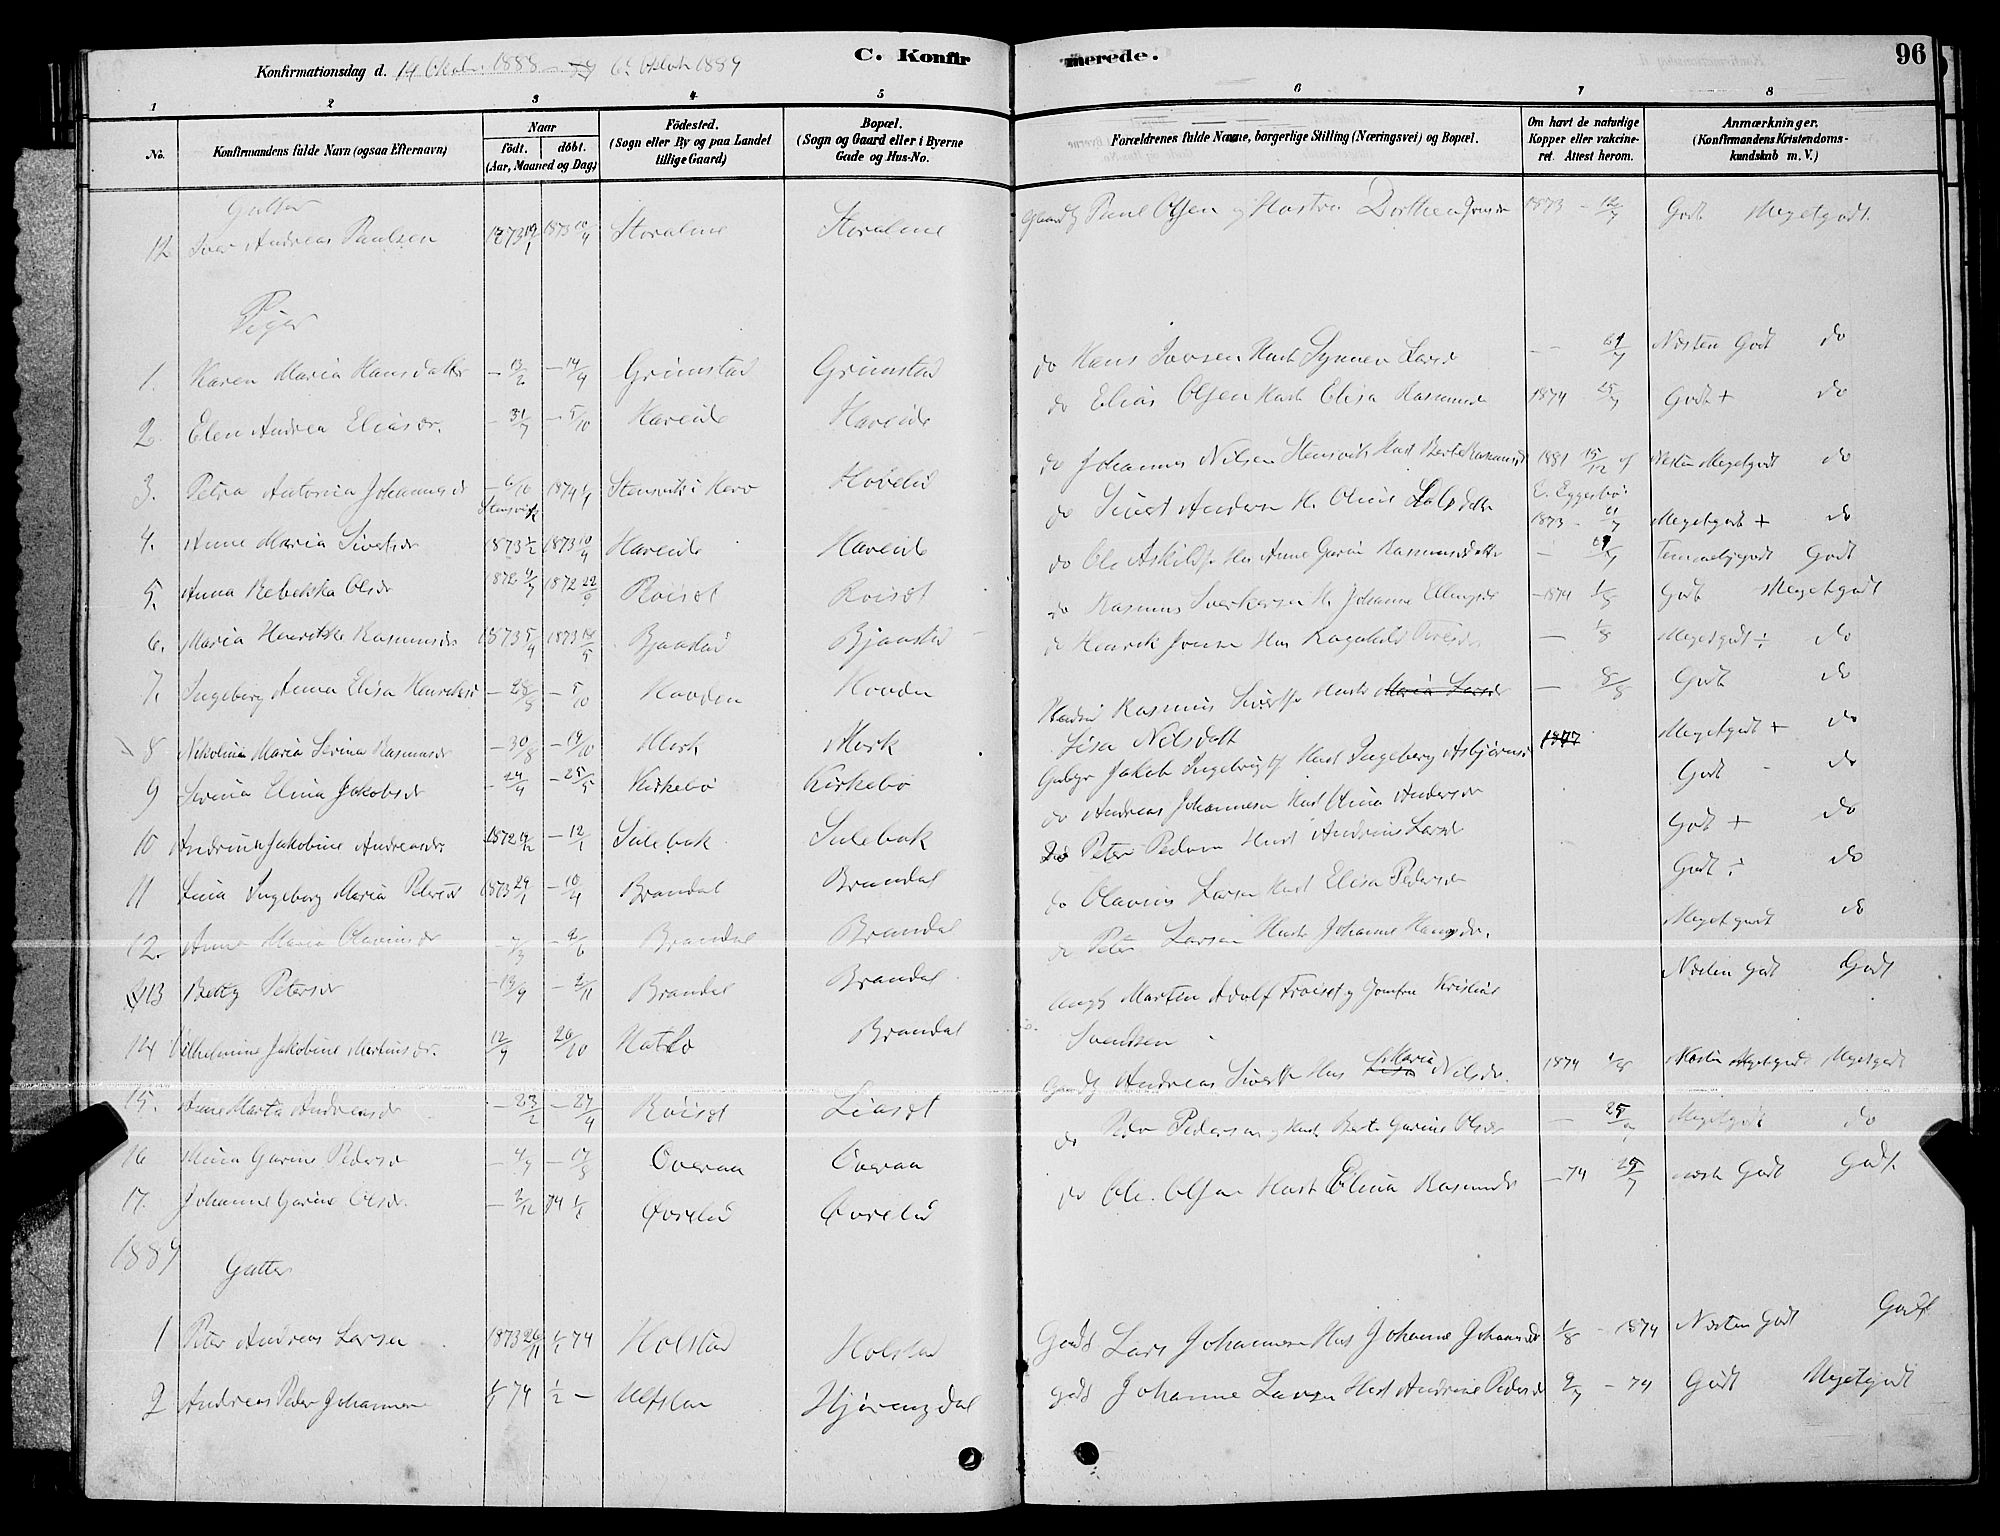 Konfirmationsdag d. 14 Oktbr. 1888 – 6 Oktbr 1889
C. Konfirmerede.
96
1 2 3 4 5 6 7 8
No.
Konfirmandens fulde Navn (ogsaa Efternavn)
Naar
födt. döbt.
(Aar, Maaned og Dag)
Födested.
(Sogn eller By og paa Landet
tillige Gaard)
Bopæl.
(Sogn og Gaard eller i Byerne
Gade og Hus-No.
Forældrenes fulde Navne, borgerlige Stilling (Næringsvei) og Bopæl.
Om havt de naturlige
Kopper eller vakcine-
ret. Attest herom.
Anmærkninger.
(Konfirmandens Kristendoms-
kundskab m. V.)
Gutter
12 Iver Andreas Paulsen 1873 1873 Storalme Storalme Paul Olsen og Hustru Dorthea 1873 - 12/7 Godt Megetgodt
Piger
1. Karen Maria Hansdatter - 13/2 - 14/4 Grimstad Grimstad do Hans Iversen Hust Synnev Larsd Næsten Godt do
2. Elen Andrea Eliasdr. - 31/7 - 5/10 Hareide Hareide do Elias Olsen Hust Elisa Rasmusd 1874 25/7 Godt + do
3. Petra Antonia Johannesd - 6/10 1874 Stensvik i Herø Stensvik do Johannes Nilsen Stensvik Hust Berte Rasmusd 1881 15/12 af E. Eggesbø Næsten Megetgodt do
4. Anne Maria Sivertsdr 1873 1/2 1873 10/4 Hareide Hareide do Sivert Andersen H. Oline 1873 - Megetgodt + do
5. Anna Rebekka Olsdr 1872 9/7 1872 22/9 Röiset Röiset do Ole Askilds Hus Anne Gurine Rasmusdatter Temmeligodt Godt
6. Maria Henrikke Rasmusdr 1873 5/4 1873 18/5 Bjaastad Bjaastad do Rasmus Sverkersen H. Johanne Ellingsdr - 1874 Godt Megetgodt
7. Ingeborg Anna Elisa Henriksd - 28/8 - 5/10 Hovden Hovden do Henrik Jonsen Hus Ragnhild Iversdr - 1/8 Megetgodt ÷ do
8 Nikolina Maria Severina Rasmusdr - 30/8 - 19/10 Mork Mork Rasmus Siverts Hust Maria Larsdr - 8/8 Godt do
Lisa Nilsdatt
9 Severina Elina Jakobsdr - 24/4 - 25/5 Kirkebö Kirkebö Jakob Ingebrigts Hust Ingeborg Asbjörnsd 1877 Megetgodt + do
Godt - do
10 Andrine Jakobine Andreasdr. 1872 19/12 - 12/1 Sulebak Sulebak do Andreas Johannesen Hust Olina Andersdr
Godt + do
11 Lina Ingeborg Maria Petersdr 1873 29/1 - 10/4 Brandal Brandal do Peter Pedersen Hust Andrine Larsd
Godt ÷ do
12. Anne Maria Olavusdr - 7/3 - 2/6 Brandal Brandal do Olavius Larsen Hust Elisa Pedersdr Megetgodt do
13 Betty Petersdr - 19/9 - 2/11 Brandal Brandal do Peter Larsen Hust Johanne Hansdr. Næsten Godt Godt
14 Vilhelmine Jakobine Martinusdr. 12/7 26/10 Brandal Ungk Martin Adolf Froiset og Jomfru Kristine
Svendsen
15. Anne Marta Andreasdr - 23/2 - 27/4 Röiset Liaset Gaardb Andreas Sivertsen Hus Lisa Maria Nilsdr. 1874 1/8 Næsten Megetgodt Megetgodt
16 Mina Gurine Pedersd - 4/7 - 17/8 Överaa Överaa do Peder Pedersen og Hust Berte Gurine Olsdr - 25/7 Megetgodt do
17. Johanne Gurine Olsdr. - 2/12 74 1/1 Övrelid Övrelid do Ole Olsen Hust Elina Rasmusdr - 74 25/7 næsten Godt Godt
1889
Gutter
1 Peter Andreas Larsen 1873 26/11 74 Holstad Holstad Gbds Lars Johannesen Hus Johanne Johannesdr 1/8 - 1874 Næsten Godt Godt
2 Andreas Peder Johannesen 74 1/2 - Hjörungdal gbds Johannes Larsen Hust Andrine Pedersdr 9/7 - 74 Godt Megetgodt